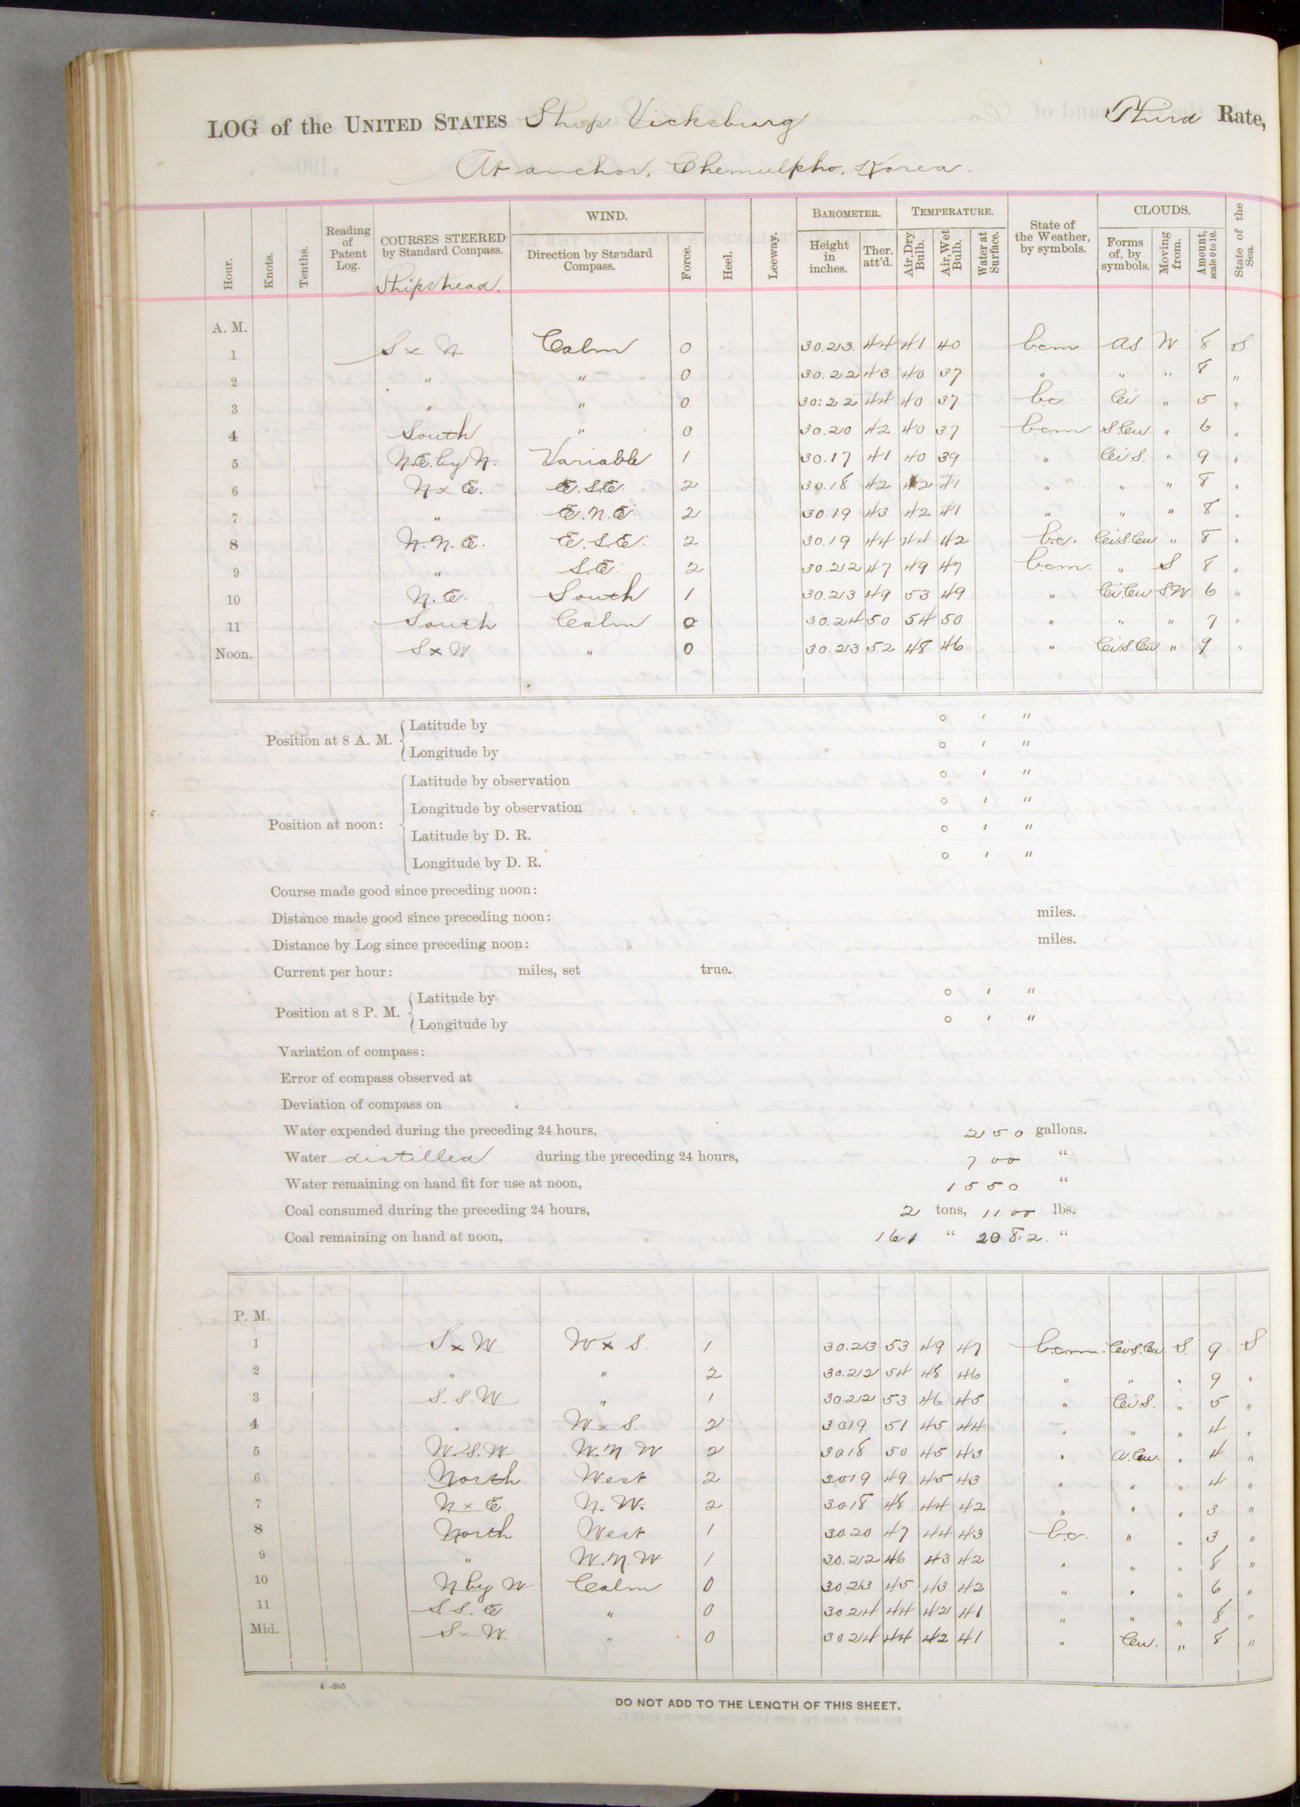 LOG of the UNITED STATES Ship Vicksburg Third Rate,
At anchor, Chemulpho, Korea.
Hour. Knots. Tenths. Reading of Patent Log. COURSES STEERED by Standard Compass. WIND. Direction by Standard Compass. Force. Heel. Leeway. BAROMETER. Height in inches. Ther. att'd. TEMPERATURE. Air, Dry Bulb. Air, Wet Bulb. Water at Surface. State of the Weather, by symbols. CLOUDS. Forms of, by symbols. Moving from. Amount, scale 0 to 10. State of the Sea.
Ship's head.
A. M.
1 S x W Calm 0 30.23 44 41 40 bcm AS W 8 S
2 " " 0 30.22 43 40 37 " " " 8 "
3 " " 0 30.22 44 40 37 bc Ci " 5 "
4 South " 0 30.20 42 40 37 bcm S.Cu " 6 "
5 N.E. by N. Variable 1 30.17 41 40 39 " Ci.S. " 9 "
6 N x E. E.S.E. 2 30.18 42 42 41 " " " 8 "
7 " E.N.E. 2 30.19 43 42 41 " " " 8 "
8 N.N.E. E.S.E. 2 30.19 44 44 42 b.c. Ci.S.Cu " 8 "
9 " S.E. 2 30.22 47 49 47 b.c.m. " S 8 "
10 N.E. South 1 30.23 49 53 49 " Ci.Cu S.W. 6 "
11 South Calm 0 30.24 50 54 50 " " " 7 "
Noon. S x W " 0 30.23 52 48 46 " Ci.S.Cu " 9 "
Position at 8 A. M. Latitude by ° ' "
Longitude by ° ' "
Position at noon: Latitude by observation ° ' "
Longitude by observation ° ' "
Latitude by D. R. ° ' "
Longitude by D. R. ° ' "
Course made good since preceding noon:
Distance made good since preceding noon: miles.
Distance by Log since preceding noon: miles.
Current per hour: miles, set true.
Position at 8 P. M. Latitude by ° ' "
Longitude by ° ' "
Variation of compass:
Error of compass observed at
Deviation of compass on
Water expended during the preceding 24 hours, 250 gallons.
Water distilled during the preceding 24 hours, 700 "
Water remaining on hand fit for use at noon, 1550 "
Coal consumed during the preceding 24 hours, 2 tons, 1100 lbs.
Coal remaining on hand at noon, 161 " 2082 "
P. M.
1 S x W W x S. 1 30.23 53 49 47 b.c.m. Ci.S.Cu. S. 9 S
2 " " 2 30.22 54 48 46 " " " 9 "
3 S.S.W " 1 30.22 53 46 45 " Ci.S. " 5 "
4 " W x S. 2 3019 51 45 44 " " " 4 "
5 W.S.W W.N.W 2 3018 50 45 43 " A.Cu. " 4 "
6 North West 2 3019 49 45 43 " " " 4 "
7 N x E. N.W. 2 3018 48 44 42 " " " 3 "
8 North West 1 3020 47 44 43 b.c. " " 3 "
9 " W.N.W 1 30.22 46 43 42 " " " 8 "
10 N by W Calm 0 30.23 45 43 42 " " " 6 "
11 S.S.E. " 0 30.24 44 42 41 " " " 8 "
Mid. S x W. " 0 30.24 44 42 41 " Cu. " 8 "
4—265
DO NOT ADD TO THE LENGTH OF THIS SHEET.